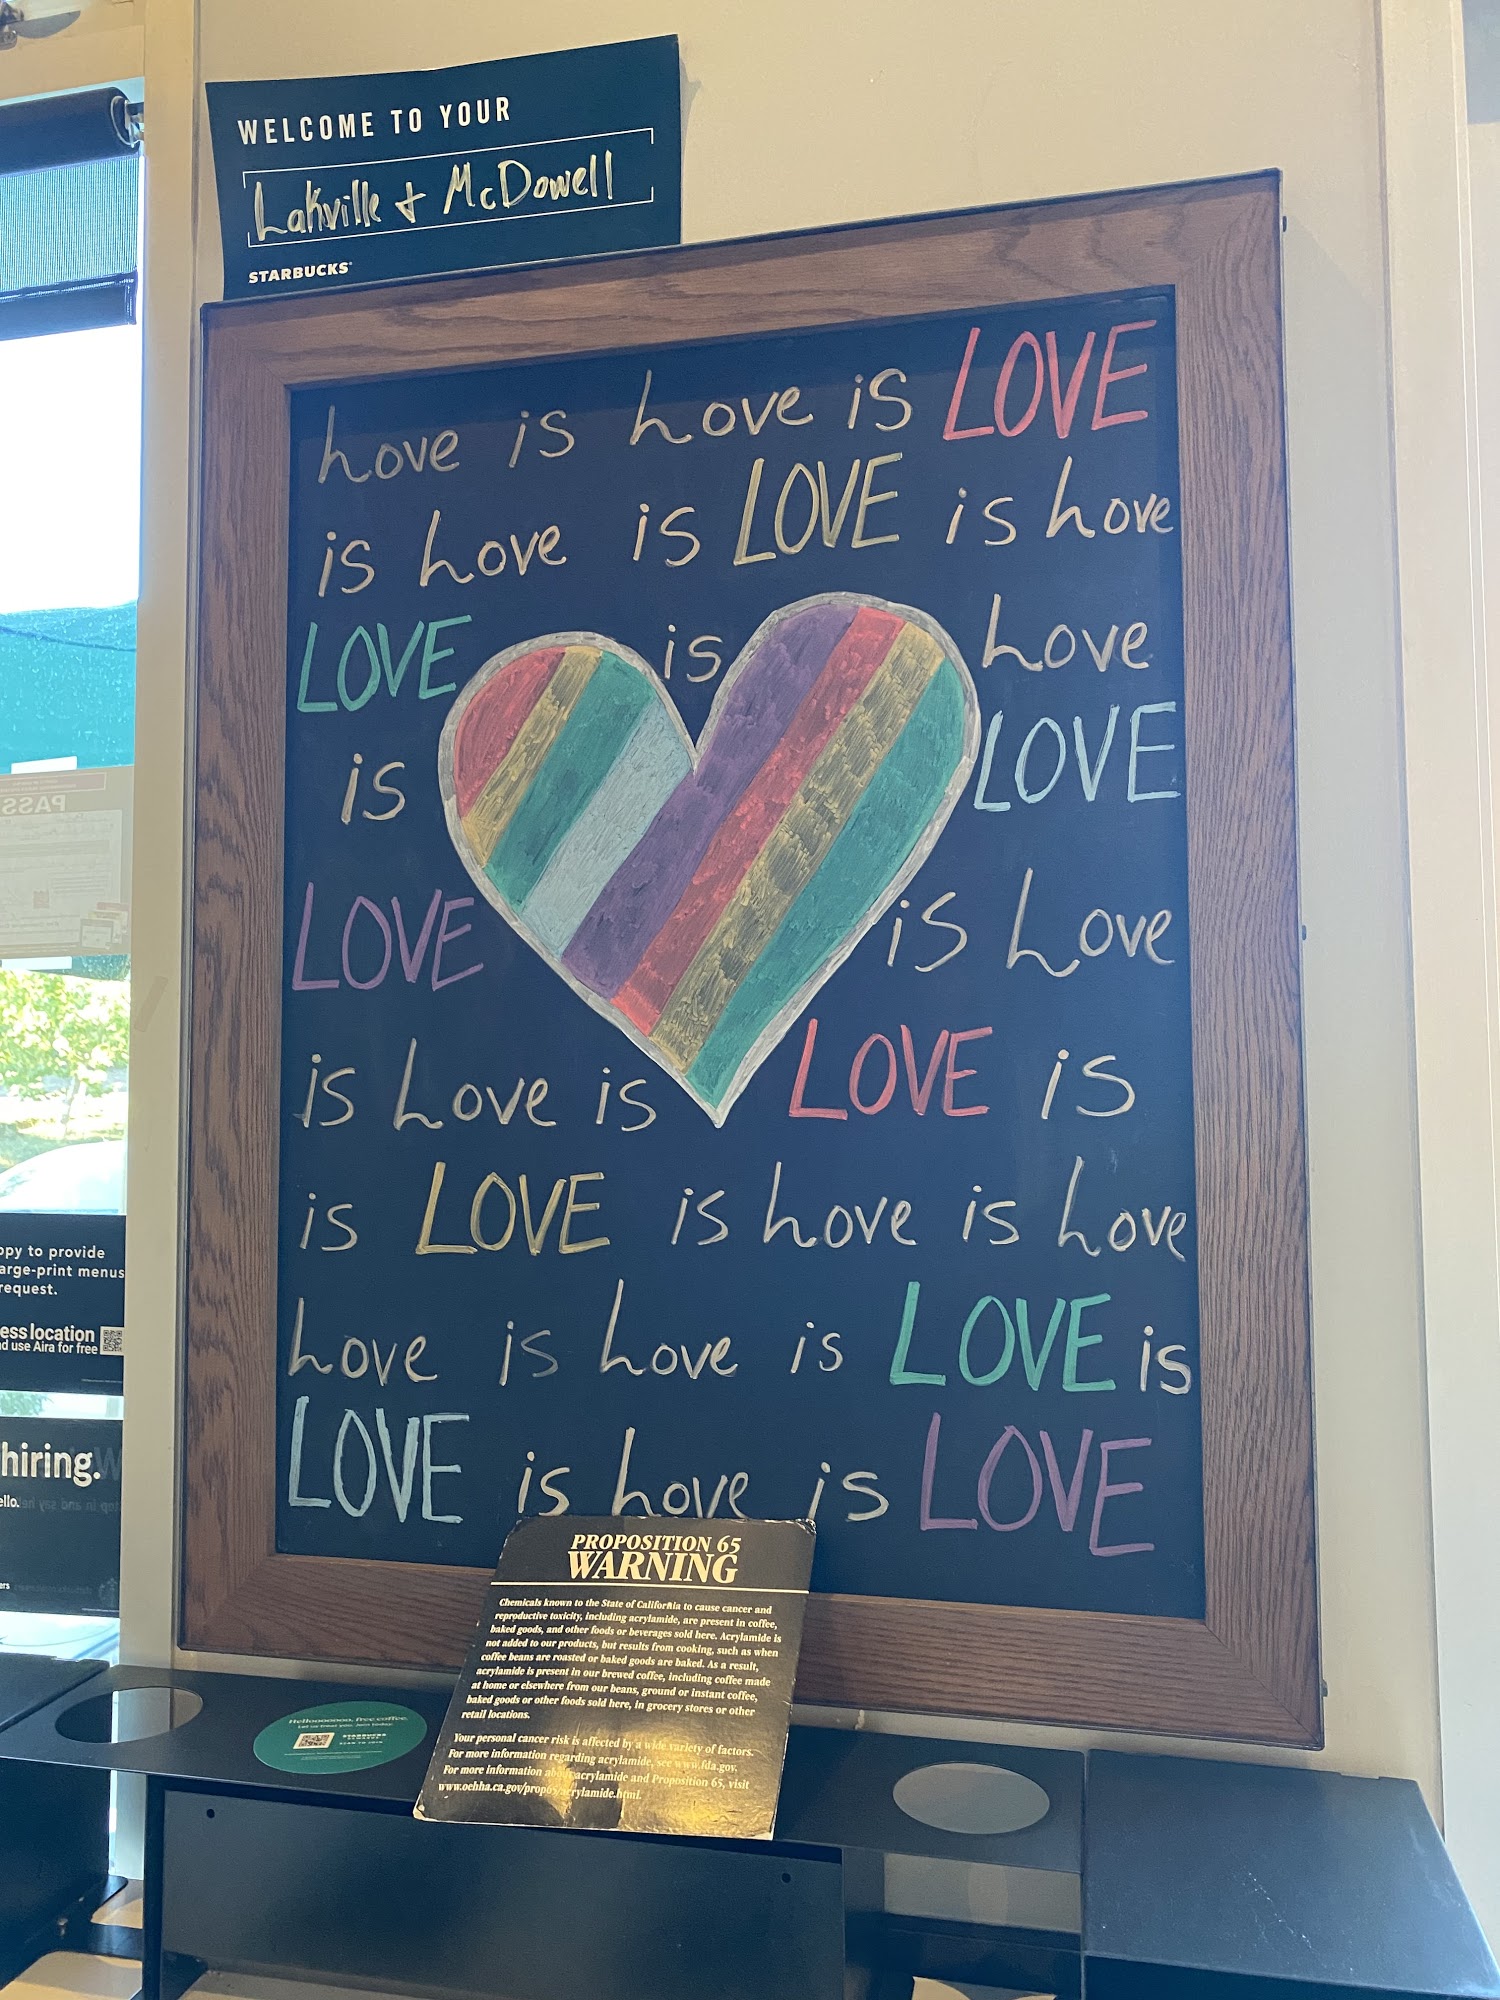 WELCOME TO YOUR
Lakville & McDowell
STARBUCKS
Love is Love is LOVE
is Love is LOVE is Love
LOVE is Love
is LOVE
LOVE is Love
is Love is LOVE is
is LOVE is Love is Love
Love is Love is LOVE is
LOVE is Love is LOVE
PROPOSITION 65
WARNING
Chemicals known to the State of California to cause cancer and
reproductive toxicity, including acrylamide, are present in coffee,
baked goods, and other foods or beverages sold here. Acrylamide is
not added to our products, but results from cooking, such as when
coffee beans are roasted or baked goods are baked. As a result,
acrylamide is present in our brewed coffee, including coffee made
at home or elsewhere from our beans, ground or instant coffee,
baked goods or other foods sold here, in grocery stores or other
retail locations.
Your personal cancer risk is affected by a wide variety of factors.
For more information regarding acrylamide, see www.fda.gov.
For more information about acrylamide and Proposition 65, visit
www.oehha.ca.gov/prop65/acrylamide.html.
Hellooooooo, free coffee.
Let us treat you. Join today.
STARBUCKS
REWARDS
SCAN TO JOIN
PASS
ppy to provide
arge-print menus
request.
ess location
nd use Aira for free
hiring.
ello.
ers